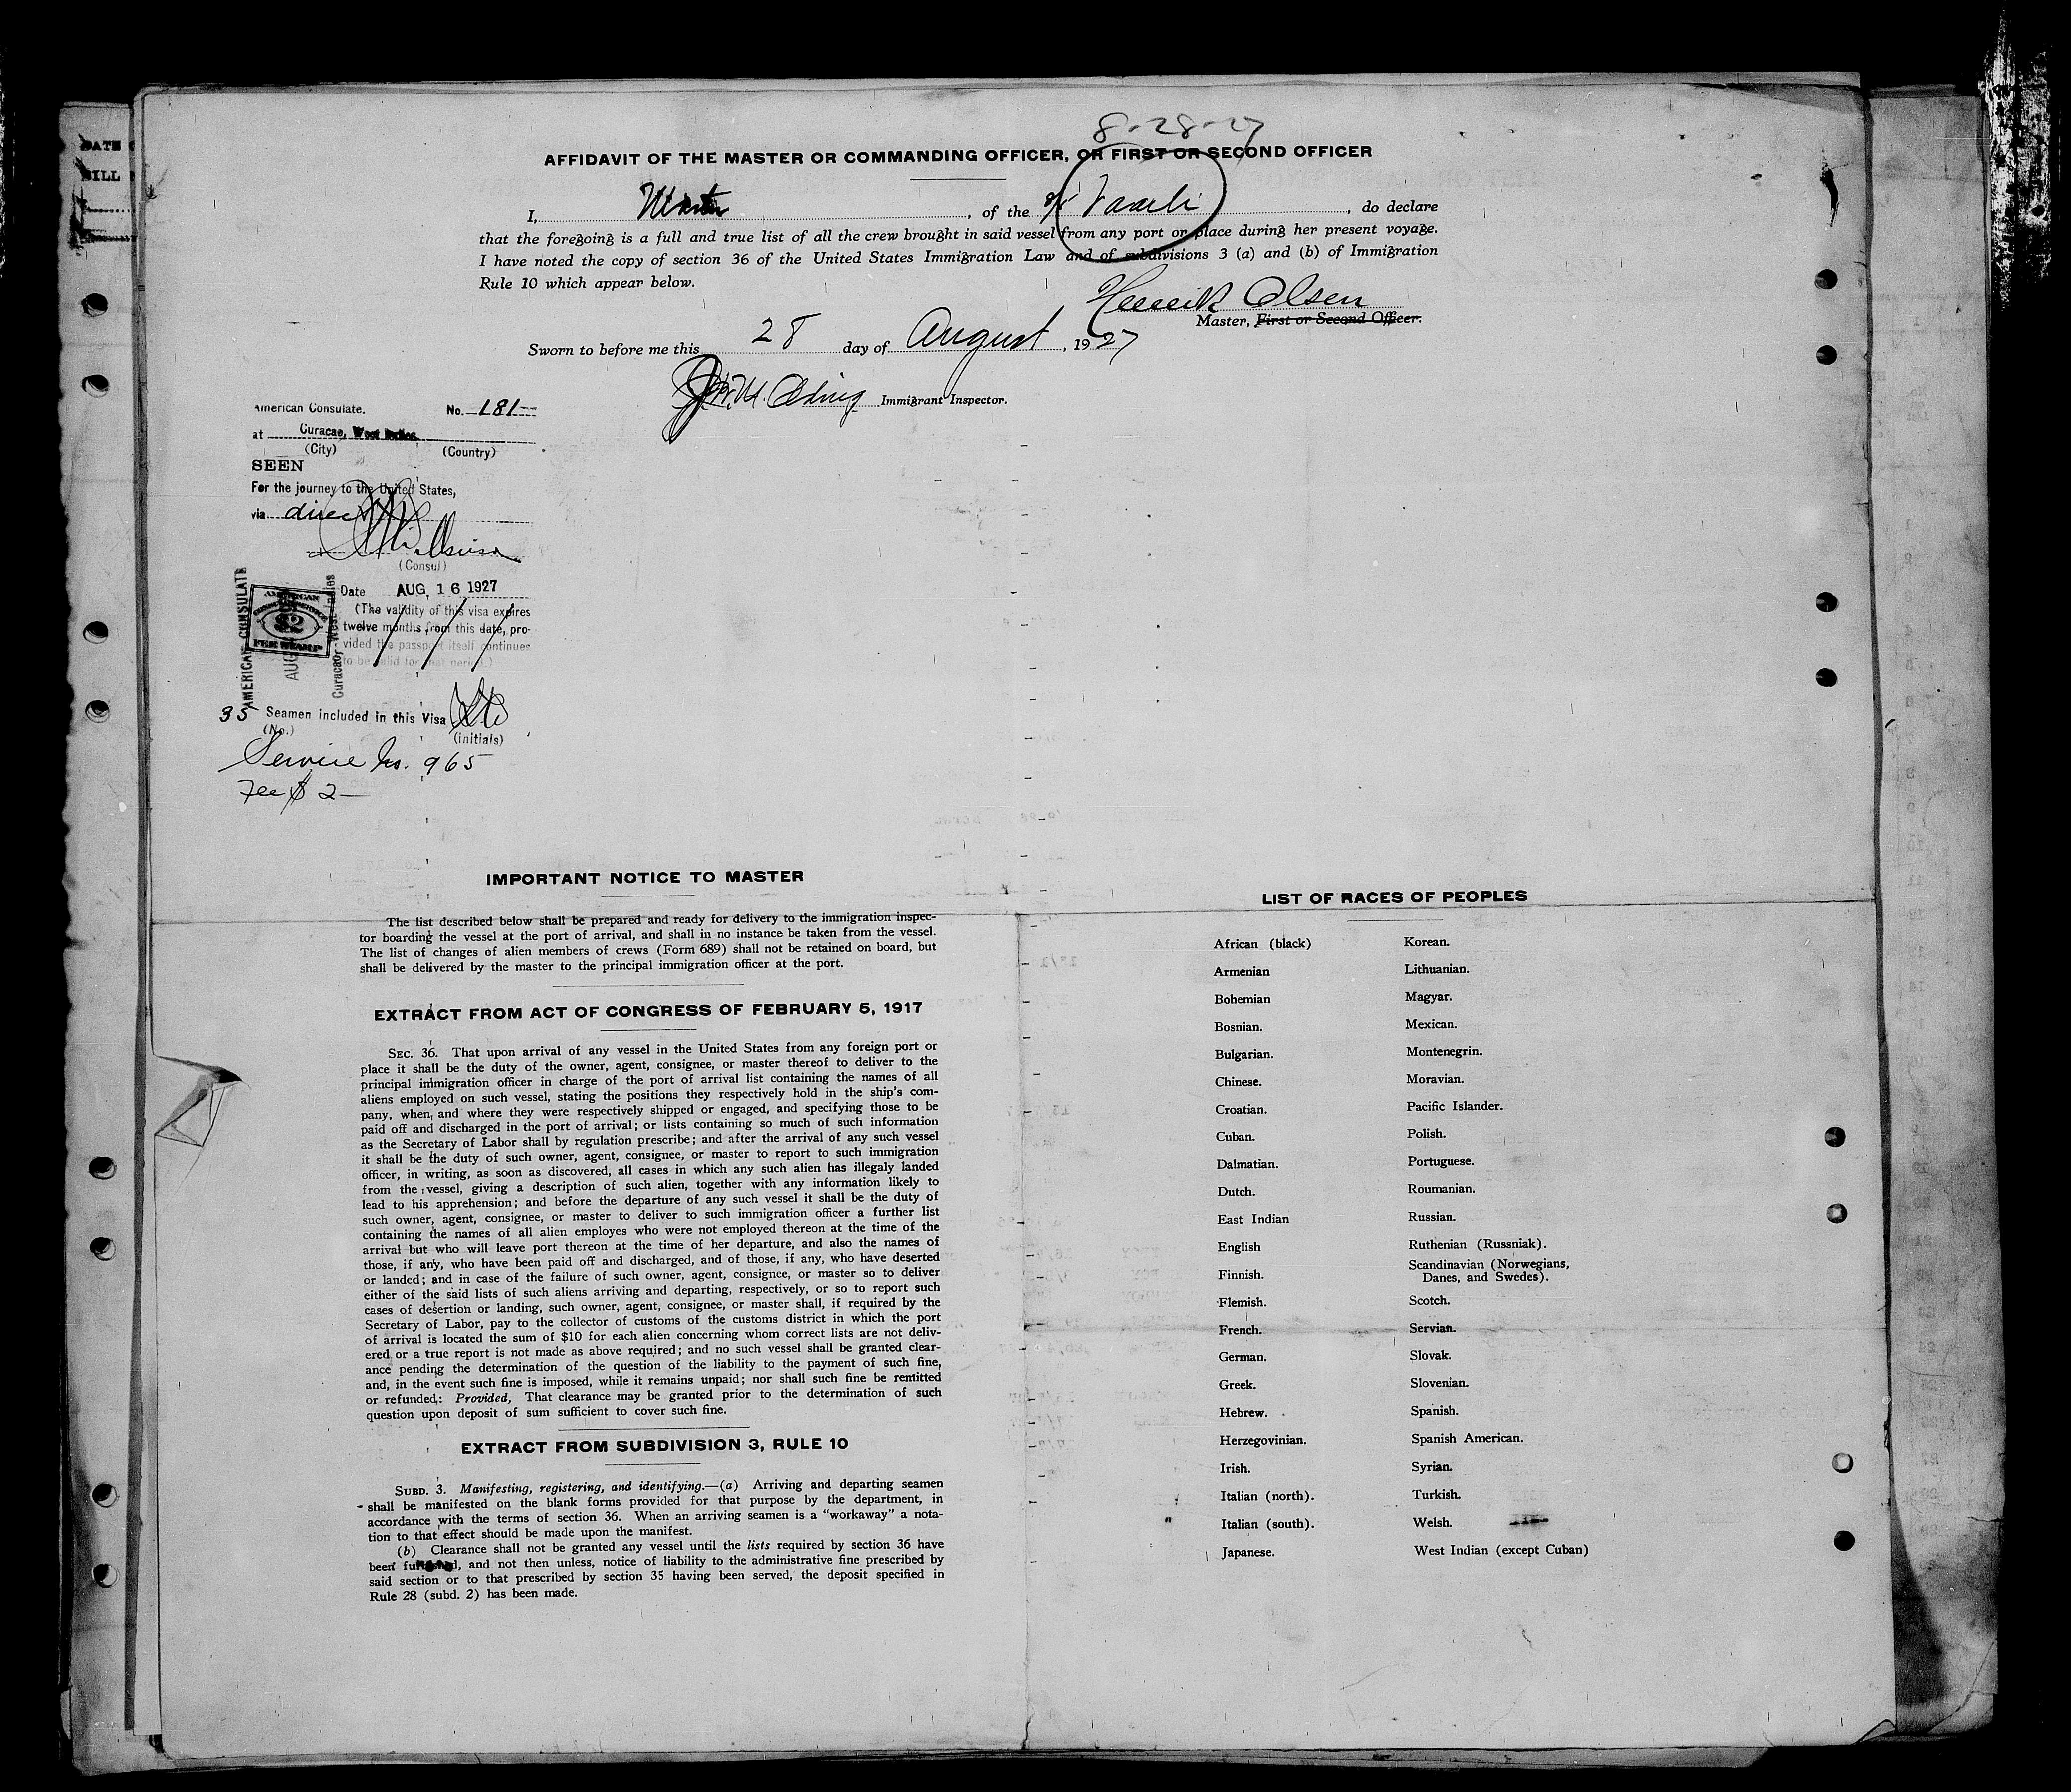 8-28-27
AFFIDAVIT OF THE MASTER OR COMMANDING OFFICER, OR FIRST OR SECOND OFFICER
I, Master, of the S/S, do declare
that the foregoing is a full and true list of all the crew brought in said vessel from any port or place during her present voyage.
I have noted the copy of section 36 of the United States Immigration Law and of subdivisions 3 (a) and (b) of Immigration
Rule 10 which appear below.
Henrik Olsen
Master, First or Second Officer.
Sworn to before me this 28 day of August, 1927
Immigrant Inspector.
American Consulate. No. 181
at Curacao, West Indies.
(City) (Country)
SEEN
For the journey to the United States,
via direct
(Consul)
Date AUG. 16 1927
(The validity of this visa expires
twelve months from this date, pro-
vided the passport itself continues
to be valid for that period.)
AMERICAN CONSULATE
AMERICAN
$2
FEE STAMP
AUG
Curacao, West Indies
35 Seamen included in this Visa
(No.) (initials)
Service No. 965
Fee $ 2—
IMPORTANT NOTICE TO MASTER
The list described below shall be prepared and ready for delivery to the immigration inspec-
tor boarding the vessel at the port of arrival, and shall in no instance be taken from the vessel.
The list of changes of alien members of crews (Form 689) shall not be retained on board, but
shall be delivered by the master to the principal immigration officer at the port.
EXTRACT FROM ACT OF CONGRESS OF FEBRUARY 5, 1917
SEC. 36. That upon arrival of any vessel in the United States from any foreign port or
place it shall be the duty of the owner, agent, consignee, or master thereof to deliver to the
principal immigration officer in charge of the port of arrival list containing the names of all
aliens employed on such vessel, stating the positions they respectively hold in the ship's com-
pany, when and where they were respectively shipped or engaged, and specifying those to be
paid off and discharged in the port of arrival; or lists containing so much of such information
as the Secretary of Labor shall by regulation prescribe; and after the arrival of any such vessel
it shall be the duty of such owner, agent, consignee, or master to report to such immigration
officer, in writing, as soon as discovered, all cases in which any such alien has illegaly landed
from the vessel, giving a description of such alien, together with any information likely to
lead to his apprehension; and before the departure of any such vessel it shall be the duty of
such owner, agent, consignee, or master to deliver to such immigration officer a further list
containing the names of all alien employes who were not employed thereon at the time of the
arrival but who will leave port thereon at the time of her departure, and also the names of
those, if any, who have been paid off and discharged, and of those, if any, who have deserted
or landed; and in case of the failure of such owner, agent, consignee, or master so to deliver
either of the said lists of such aliens arriving and departing, respectively, or so to report such
cases of desertion or landing, such owner, agent, consignee, or master shall, if required by the
Secretary of Labor, pay to the collector of customs of the customs district in which the port
of arrival is located the sum of $10 for each alien concerning whom correct lists are not deliv-
ered or a true report is not made as above required; and no such vessel shall be granted clear-
ance pending the determination of the question of the liability to the payment of such fine,
and, in the event such fine is imposed, while it remains unpaid; nor shall such fine be remitted
or refunded: Provided, That clearance may be granted prior to the determination of such
question upon deposit of sum sufficient to cover such fine.
EXTRACT FROM SUBDIVISION 3, RULE 10
SUBD. 3. Manifesting, registering, and identifying.—(a) Arriving and departing seamen
shall be manifested on the blank forms provided for that purpose by the department, in
accordance with the terms of section 36. When an arriving seamen is a "workaway" a nota-
tion to that effect should be made upon the manifest.
(b) Clearance shall not be granted any vessel until the lists required by section 36 have
been furnished, and not then unless, notice of liability to the administrative fine prescribed by
said section or to that prescribed by section 35 having been served, the deposit specified in
Rule 28 (subd. 2) has been made.
LIST OF RACES OF PEOPLES
African (black)
Armenian
Bohemian
Bosnian.
Bulgarian.
Chinese.
Croatian.
Cuban.
Dalmatian.
Dutch.
East Indian
English
Finnish.
Flemish.
French.
German.
Greek.
Hebrew.
Herzegovinian.
Irish.
Italian (north).
Italian (south).
Japanese.
Korean.
Lithuanian.
Magyar.
Mexican.
Montenegrin.
Moravian.
Pacific Islander.
Polish.
Portuguese.
Roumanian.
Russian.
Ruthenian (Russniak).
Scandinavian (Norwegians,
Danes, and Swedes).
Scotch.
Servian.
Slovak.
Slovenian.
Spanish.
Spanish American.
Syrian.
Turkish.
Welsh.
West Indian (except Cuban)